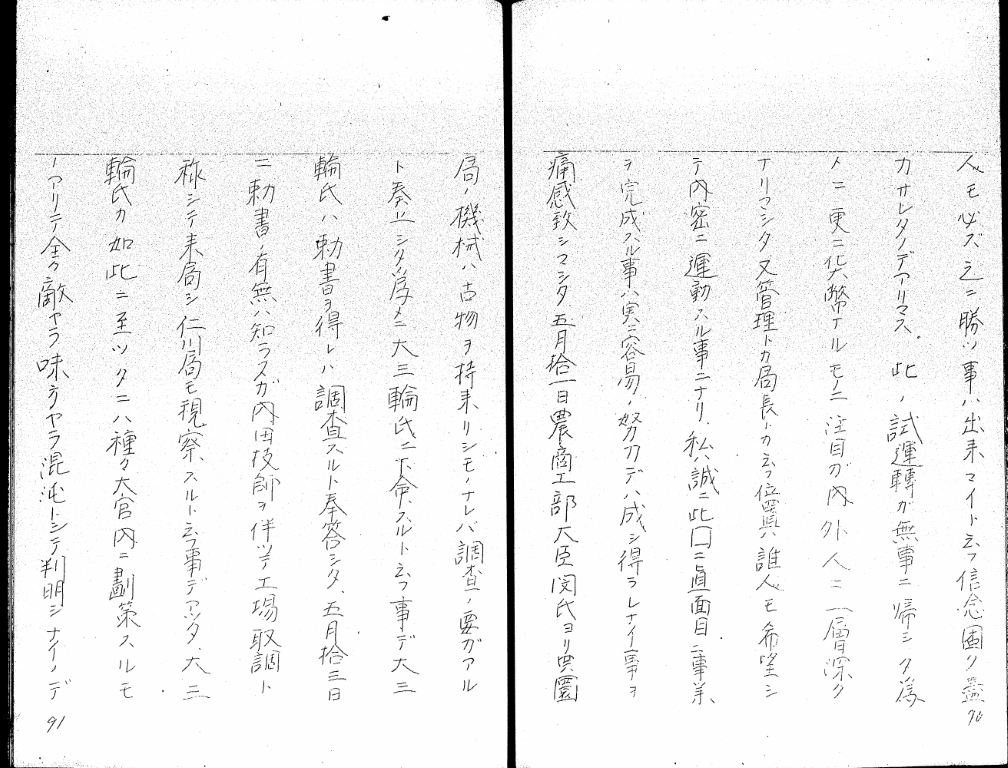 人モ必ズ之ニ勝ツ事ハ出来マイト云フ信念固ク盡
カサレタノデアリマス、此ノ試運轉ガ無事ニ帰シタ為
メニ更ニ貨幣ナルモノニ注目ガ内外人ニ一層深ク
ナリマシタ又管理トカ局長トカ云フ位置ハ誰人モ希望シ
テ内密ニ運動スル事ニナリ、私ハ誠ニ此口ニ真面目ニ事業
ヲ完成スル事ハ実ニ容易ノ努力デハ成シ得ラレナイ事ヲ
痛感致シマシタ五月拾一日農商工部大臣閔氏ヨリ典圜
90
局ノ機械ハ古物ヲ持来リシモノナレバ調査ノ要ガアル
ト奏上シタ為メニ大三輪氏ニ下命スルト云フ事デ大三
輪氏ハ勅書ヲ得レハ調査スルト奉答シタ、五月拾三日
ニ勅書ノ有無ハ知ラヌガ内田技師ヲ伴ツテ工場取調ト
称シテ来局シ仁川局モ視察スルト云フ事デアツタ、大三
輪氏カ如此ニ至ツタニハ種々大官内ニ劃策スルモ
ノアリテ全ク敵ヤラ味方ヤラ混沌トシテ判明シナイノデ
91